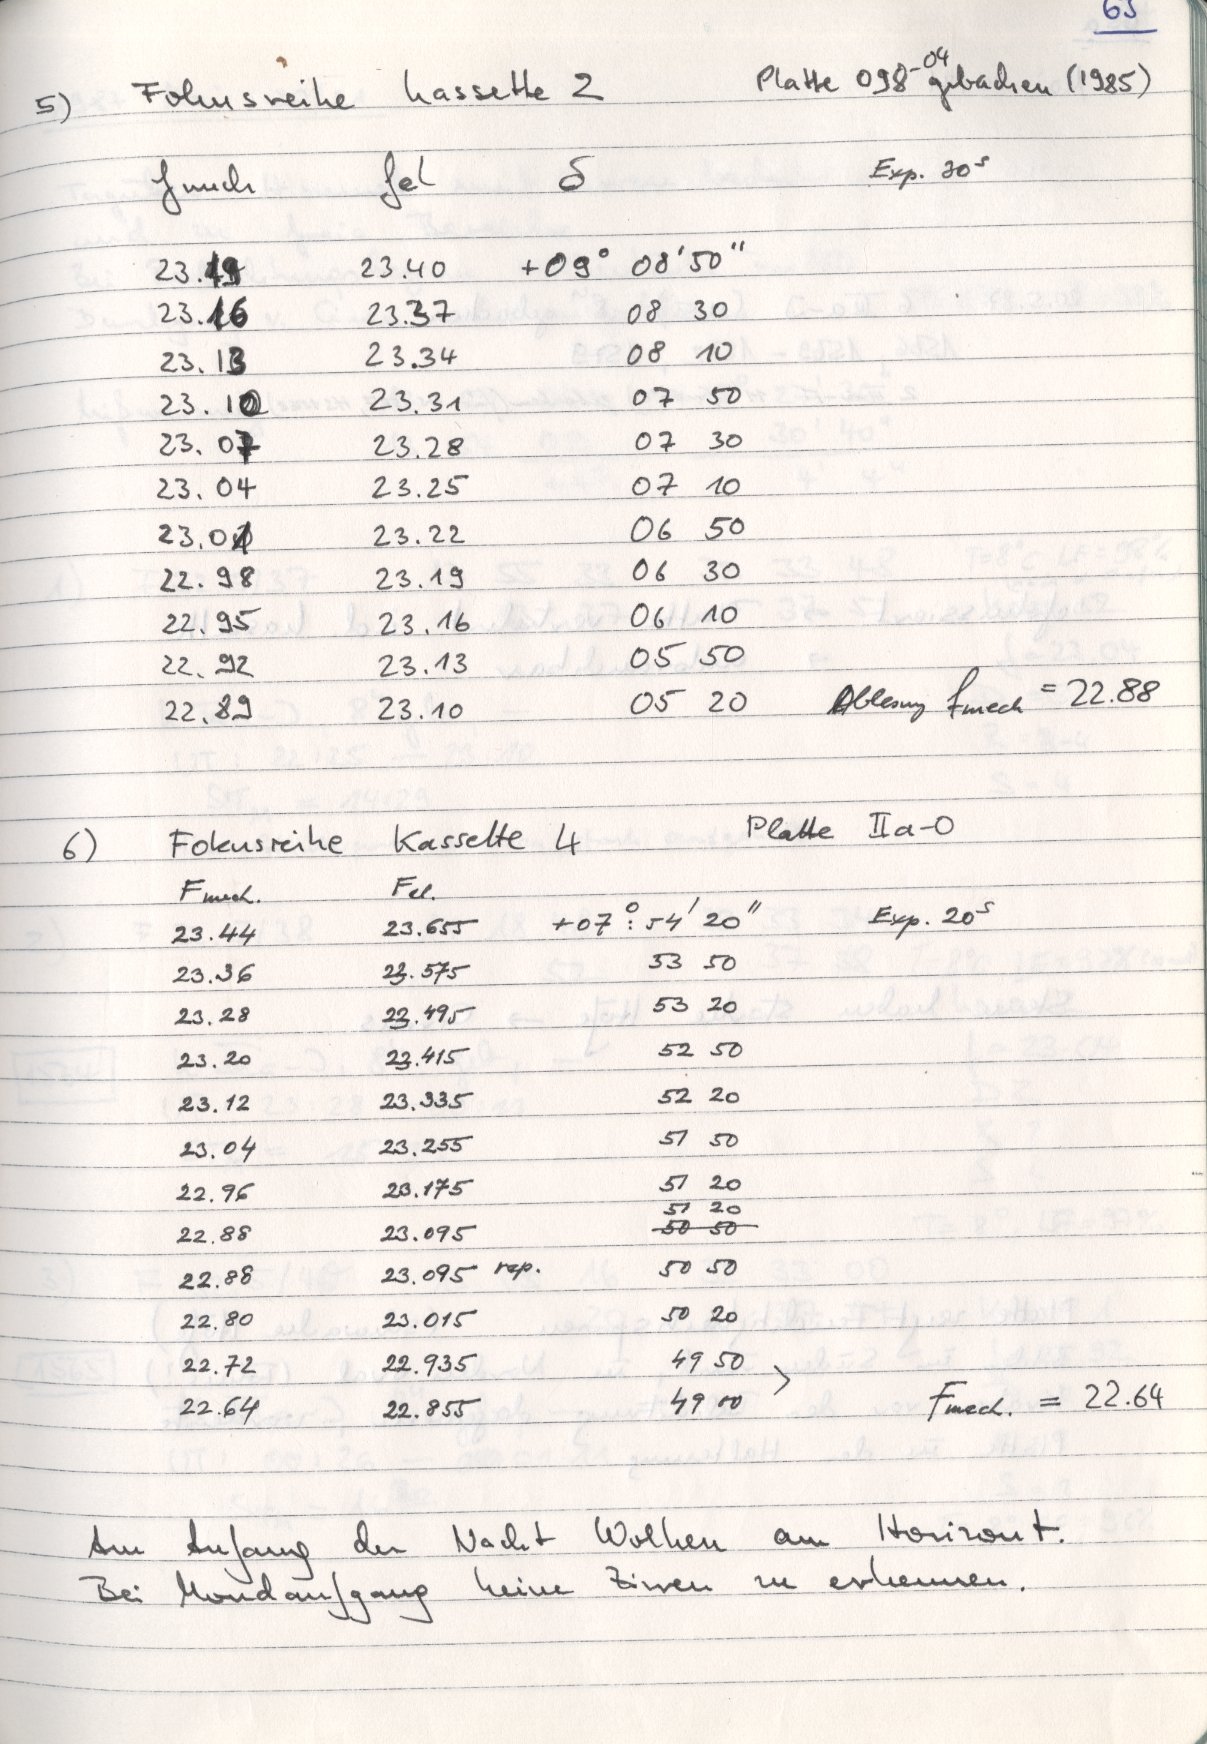 63
5) Fokusreihe Kassette 2 Platte 098-04 gebacken (1985)
fmech fel δ Exp. 30s
23.19 23.40 +09° 08' 50"
23.16 23.37 08 30
23.13 23.34 08 10
23.10 23.31 07 50
23.07 23.28 07 30
23.04 23.25 07 10
23.01 23.22 06 50
22.98 23.19 06 30
22.95 23.16 06 10
22.92 23.13 05 50
22.89 23.10 05 20 Ablesung fmech = 22.88
6) Fokusreihe Kassette 4 Platte IIa-O
Fmech. Fel.
23.44 23.655 +07° : 54' 20" Exp. 20s
23.36 23.575 53 50
23.28 23.495 53 20
23.20 23.415 52 50
23.12 23.335 52 20
23.04 23.255 51 50
22.96 23.175 51 20
51 20
22.88 23.095 50 50
22.88 23.095 rep. 50 50
22.80 23.015 50 20
22.72 22.935 49 50
22.64 22.855 49 00 > Fmech. = 22.64
Am Anfang der Nacht Wolken am Horizont.
Bei Mondaufgang keine Zirren zu erkennen.